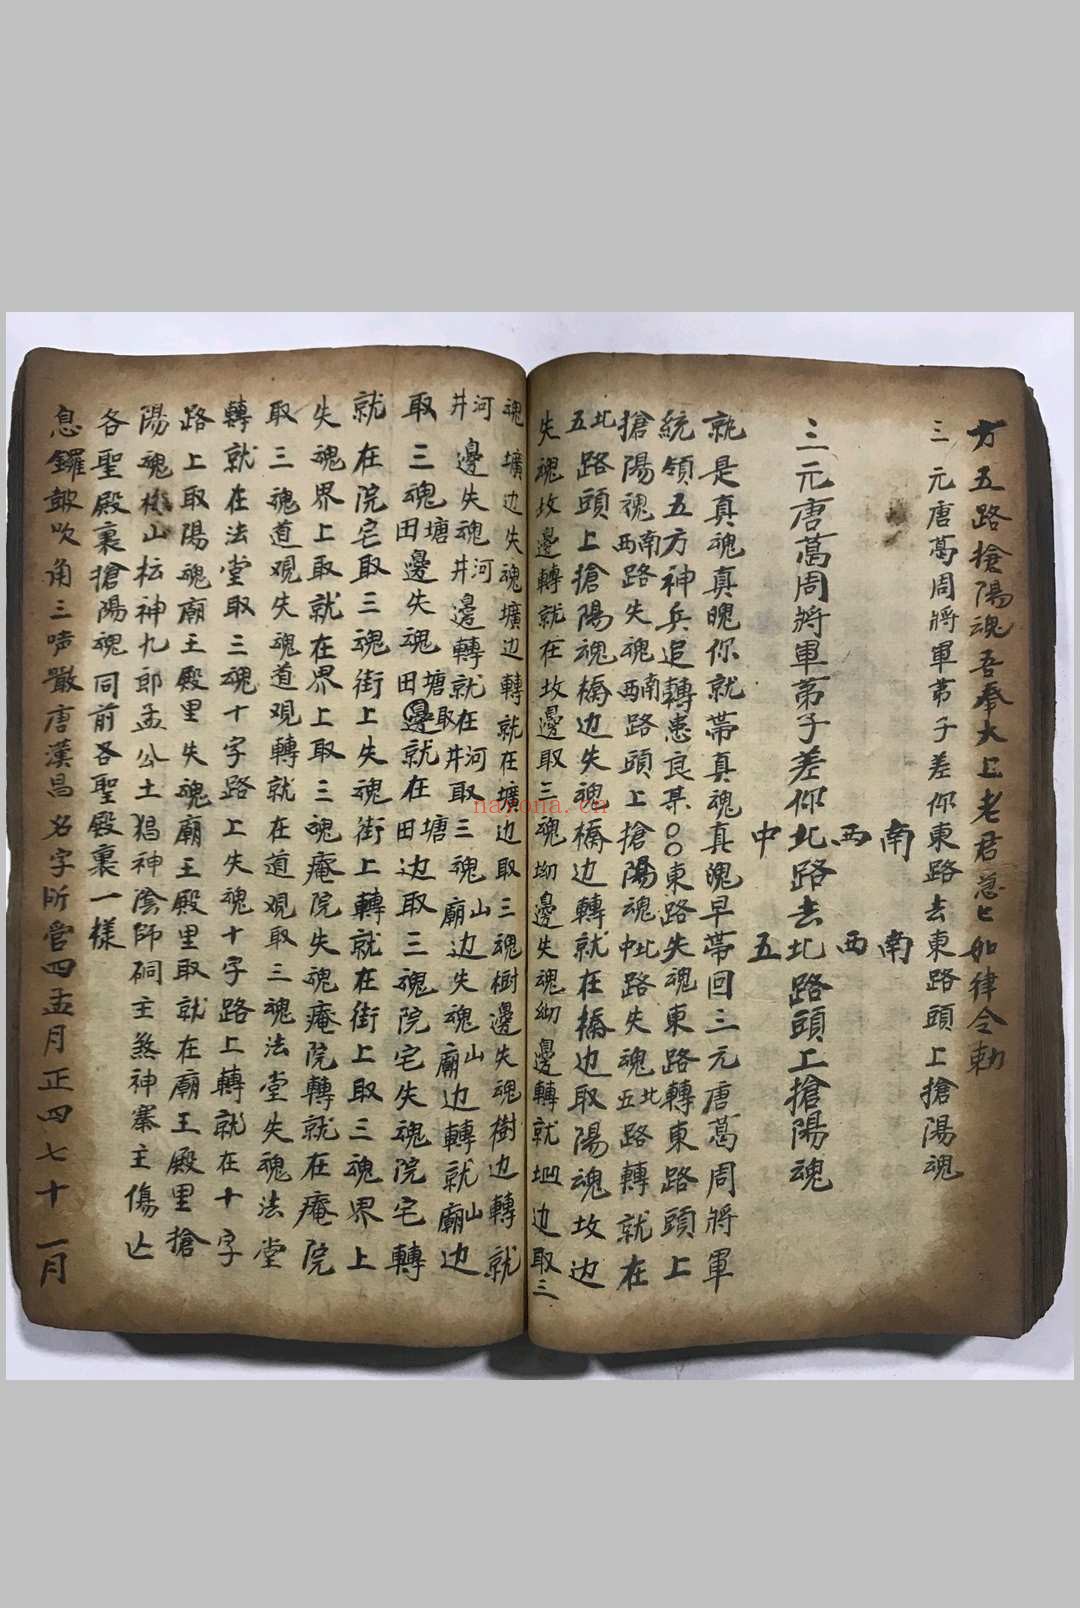 方五路搶陽魂吾奉太上老君急匕如律令勅
三元唐葛周將軍苐子差你東路去東路頭上搶陽魂
南 南
西 西
三元唐萬周將軍苐子差你北路去北路頭上搶陽魂
中 五
就是真魂真魄你就帯真魂真魄早帯回三元唐葛周將軍
統領五方神兵追轉患良某〇〇東路失魂東路轉東路頭上
搶陽魂南西路失魂南西路頭上搶陽魂北中路失魂北五路轉就在
北五路頭上搶陽魂橋边失魂橋边轉就在橋边取陽魂坟边
失魂坟邊轉就在坟邊取三魂坳邊失魂坳邊轉就坳边取三
魂壙边失魂壙边轉就在壙边取三魂樹邊失魂樹边轉就
河井邊失魂河井邊轉就取在河井取三魂山廟边失魂山廟边轉就山廟边
取三魂塘田邊失魂塘田邊就在塘田边取三魂院宅失魂院宅轉
就在院宅取三魂街上失魂街上轉就在街上取三魂界上
失魂界上取就在界上取三魂庵院失魂庵院轉就在庵院
取三魂道观失魂道观轉就在道观取三魂法堂失魂法堂
轉就在法堂取三魂十字路上失魂十字路上轉就在十字
路上取陽魂廟王殿里失魂廟王殿里取就在廟王殿里搶
陽魂山枟神九郎孟公土猖神陰師祠主煞神寨主傷亡
各聖殿裏搶陽魂同前各聖殿裏一樣
息鑼皷吹角三声嚴唐漢昌名字所管四孟月正四七十一月